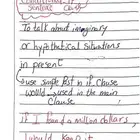 To talk about imaginary
or hypothetical situations
in present
use simple past in if clause
would used in the main
clause
If I found a million dollars
I would keep it